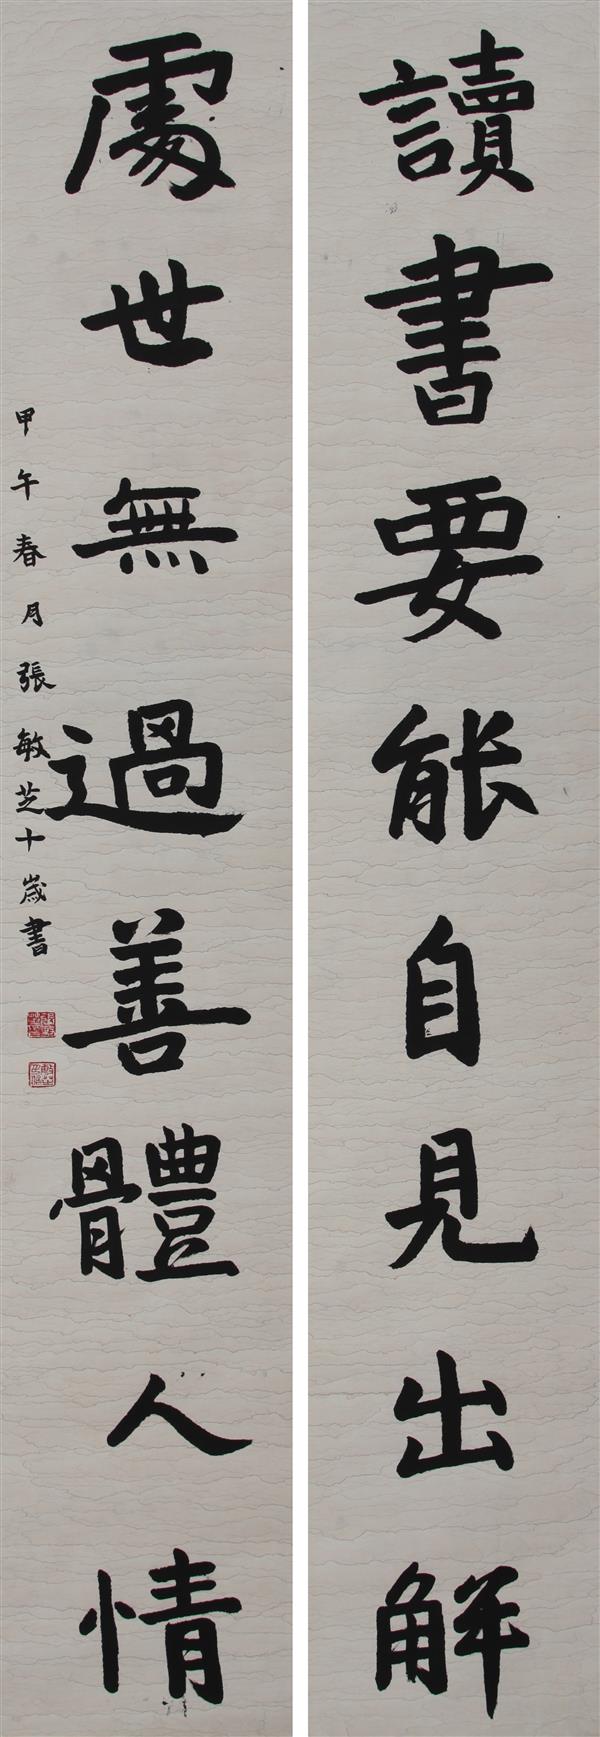 讀書要能自見出解
處世無過善體人情
甲午春月張敏芝十歲書